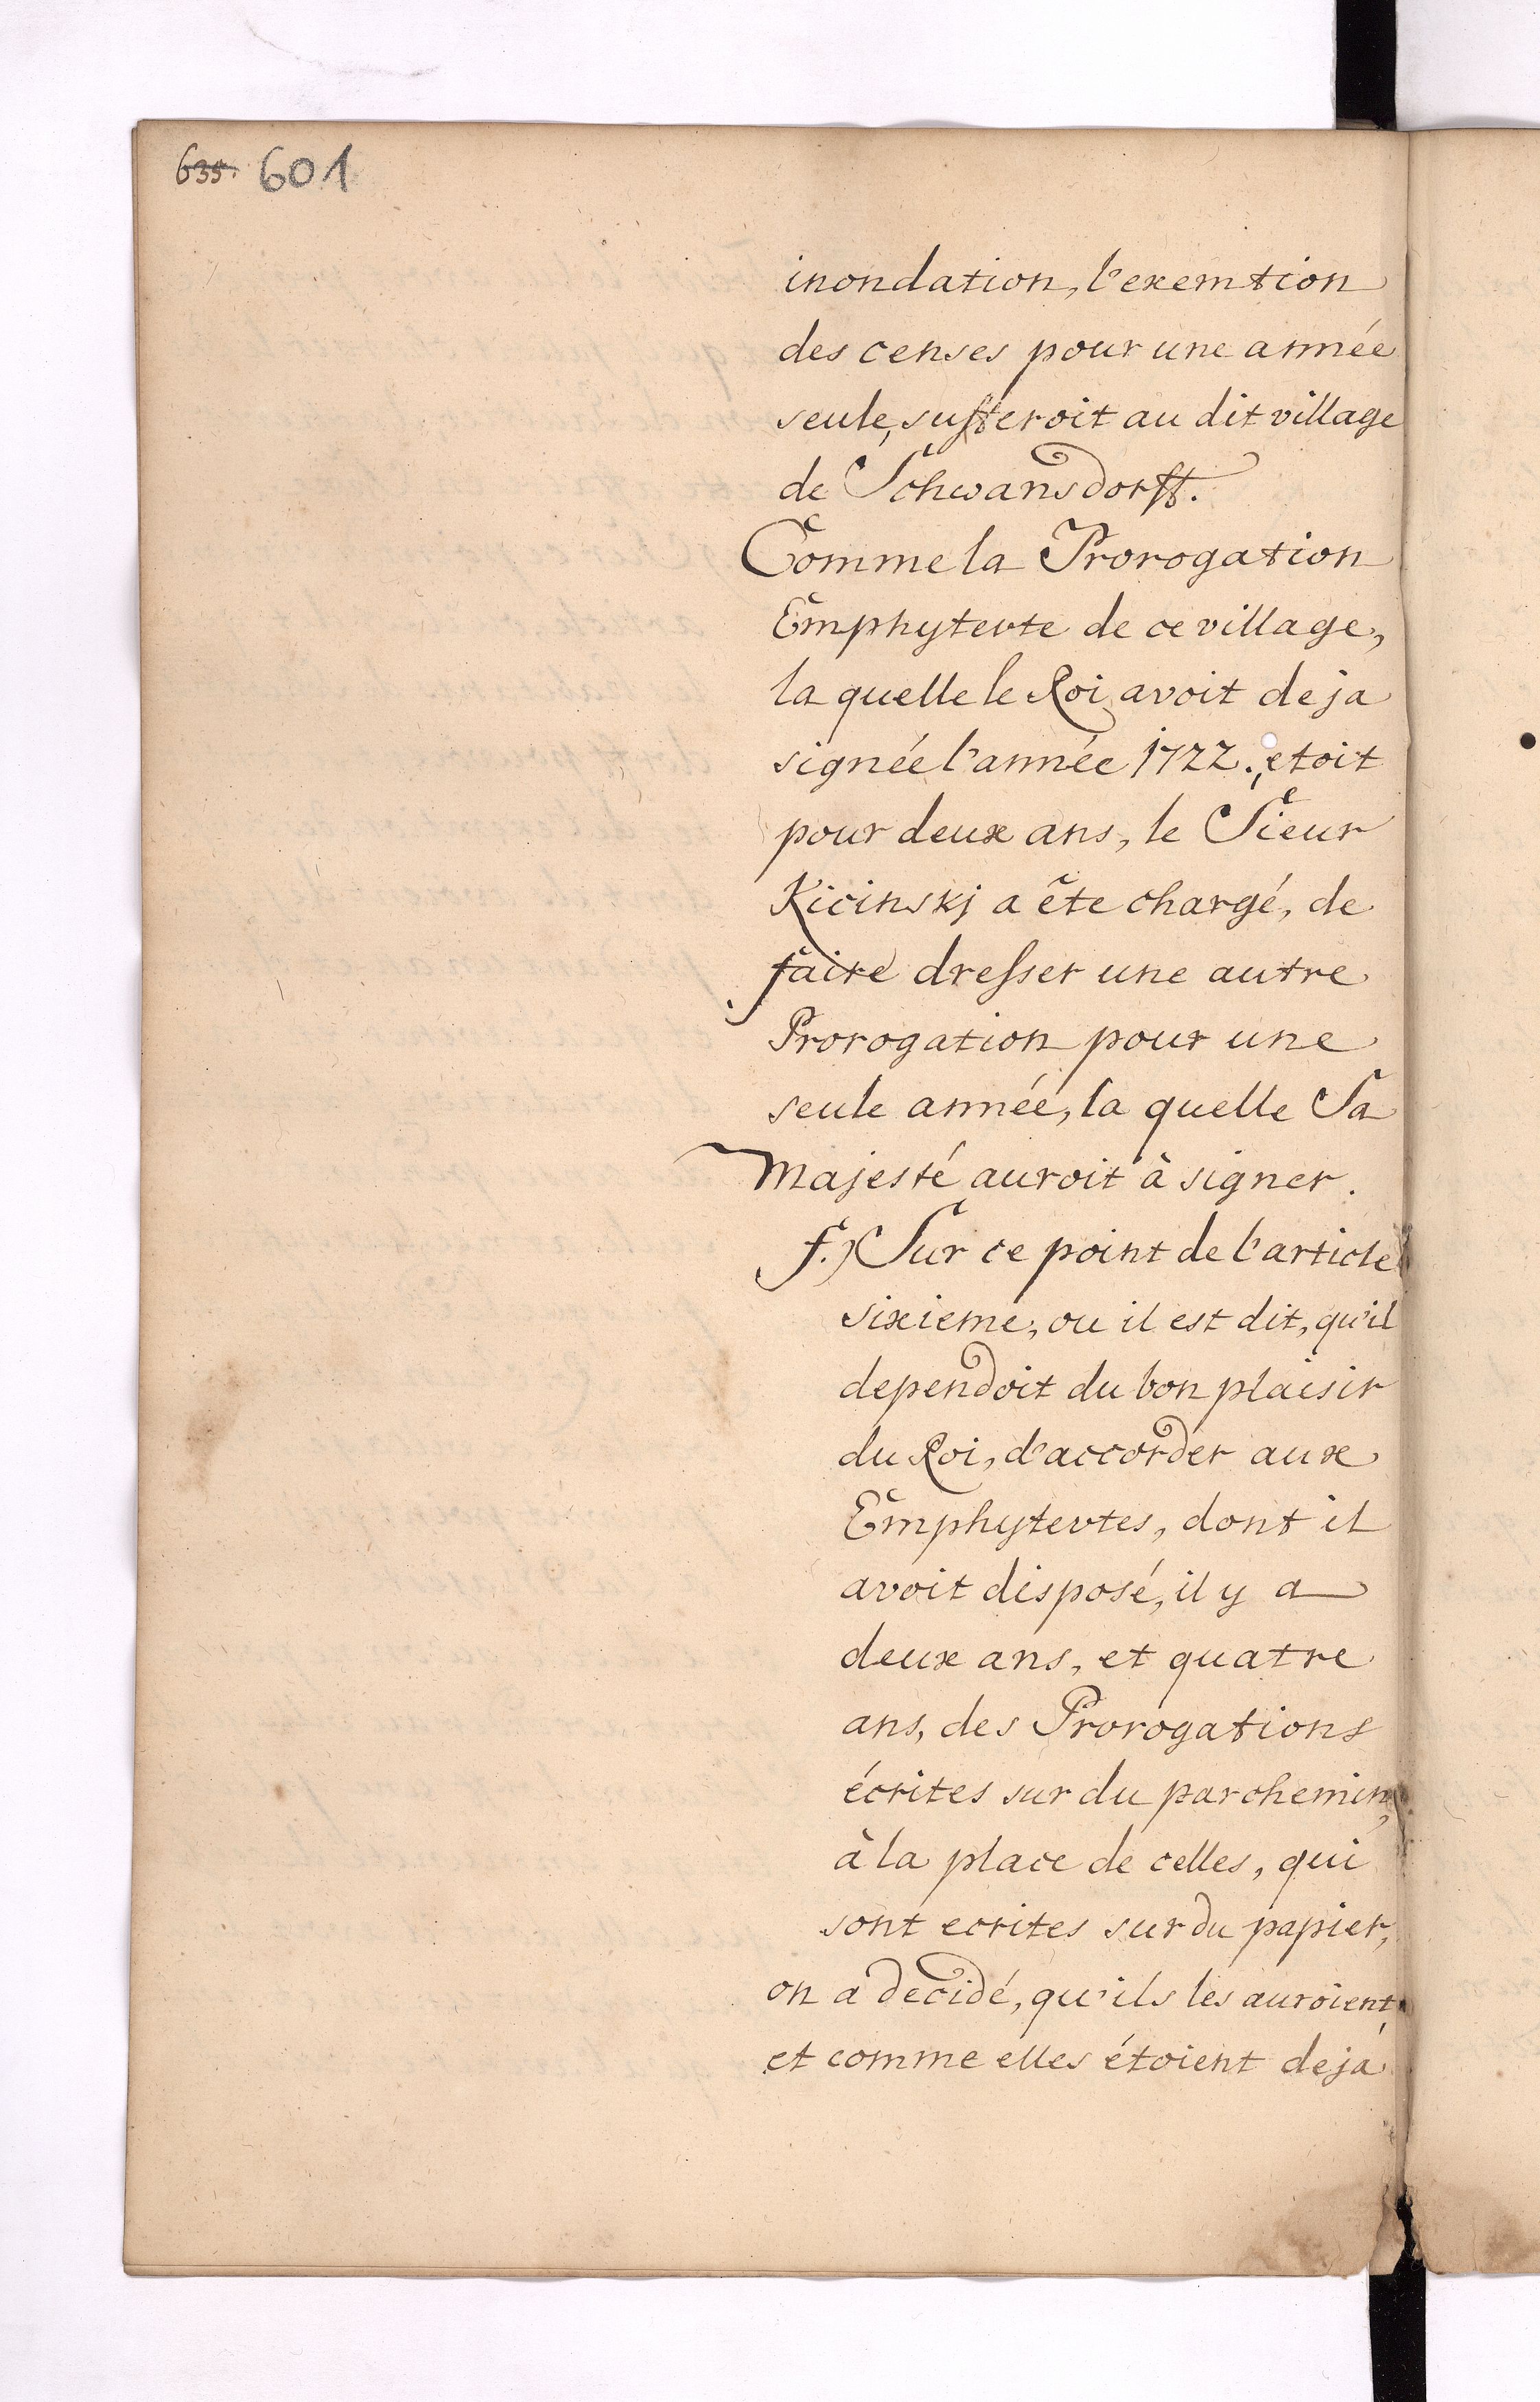 635. 601
inondation, l'exemtion
des censes pour une année
seule, sufferoit au dit village
de Schwansdorff.
Comme la Prorogation
Emphytevte de ce village,
la quelle le Roi avoit deja
signée l'année 1722., etoit
pour deux ans, le Sieur
Kicinskj a ête chargé, de
faire dresser une autre
Prorogation pour une
seule année, la quelle Sa
Majesté auroit à signer.
f.) Sur ce point de l'article
sixieme, ou il est dit, qu'il
dependoit du bon plaisir
du Roi, d'accorder aux
Emphytevtes, dont il
avoit disposé, il y a
deux ans, et quatre
ans, des Prorogations
écrites sur du parchemin,
à la place de celles, qui
sont ecrites sur du papier,
on a decidé, qu'ils les auroient,
et comme elles étoient dejá